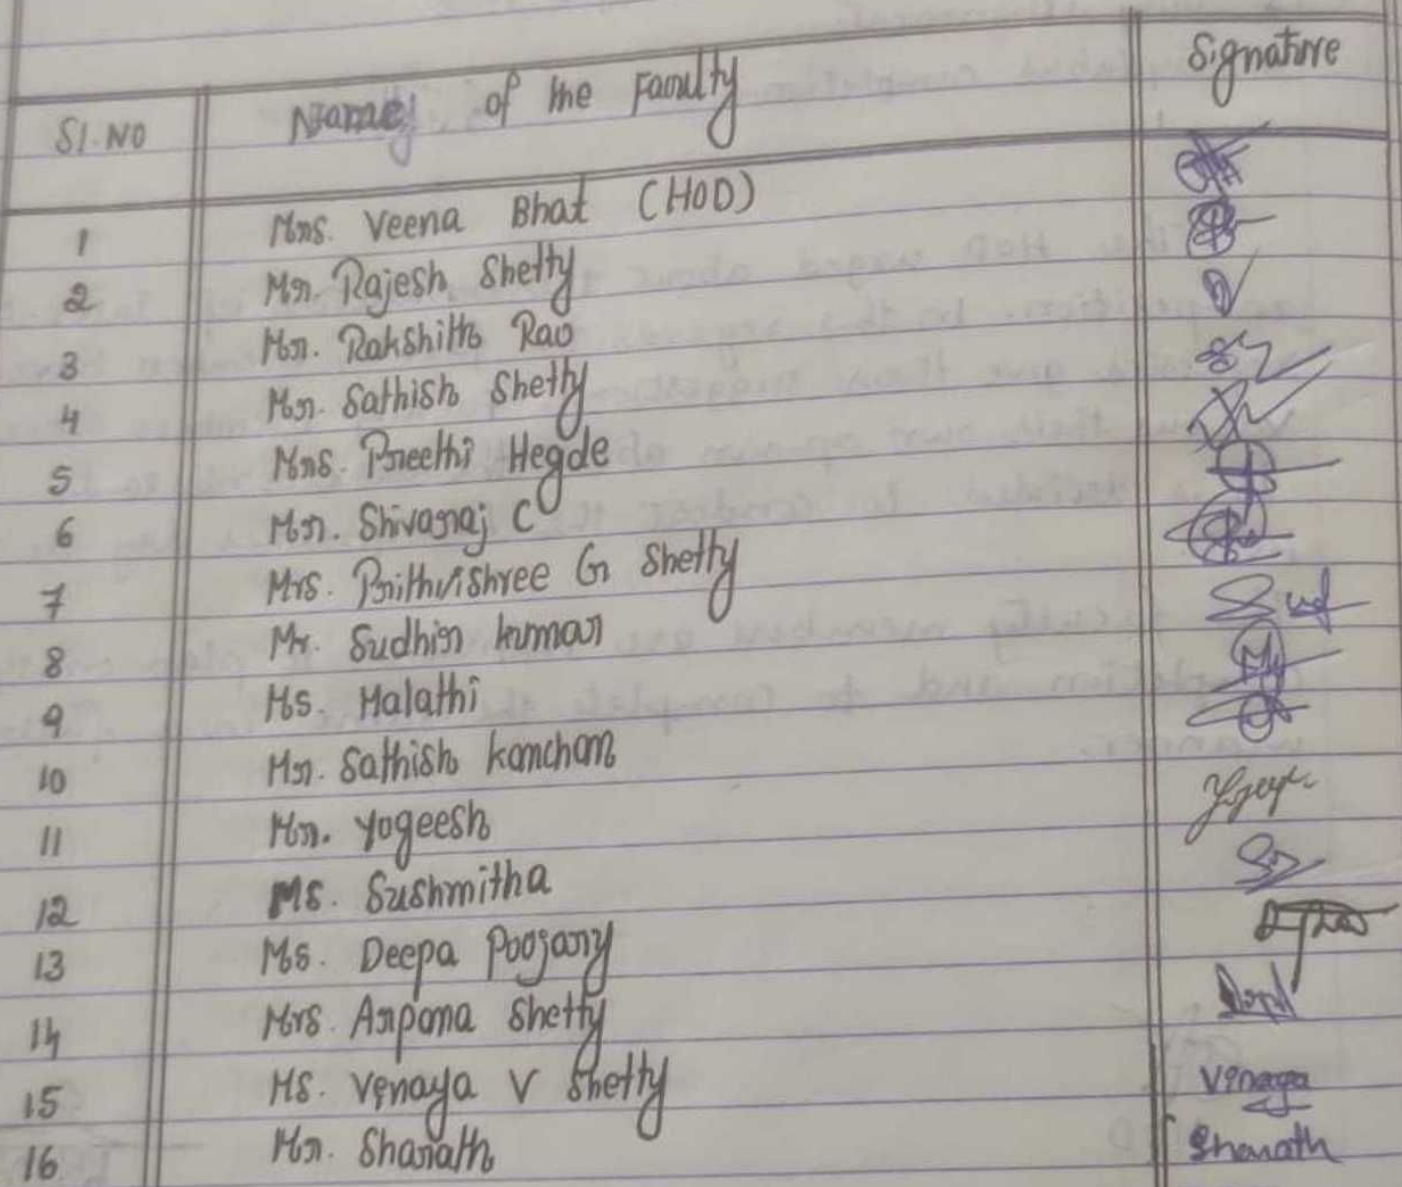 Sl. NO Names of the Faculty Signature
1 Mrs. Veena Bhat (HOD)
2 Mr. Rajesh Shetty
3 Mr. Rakshith Rao
4 Mr. Sathish Shetty
5 Mrs. Preethi Hegde
6 Mr. Shivaraj C
7 Mrs. Prithvishree G Shetty
8 Mr. Sudhir kumar Sud
9 Ms. Malathi
10 Mr. Sathish kanchan
11 Mr. Yogeesh
12 Ms. Sushmitha
13 Ms. Deepa Poojary
14 Mrs. Arpana Shetty
15 Ms. Vinaya V Shetty Vinaya
16 Mr. Sharath Sharath